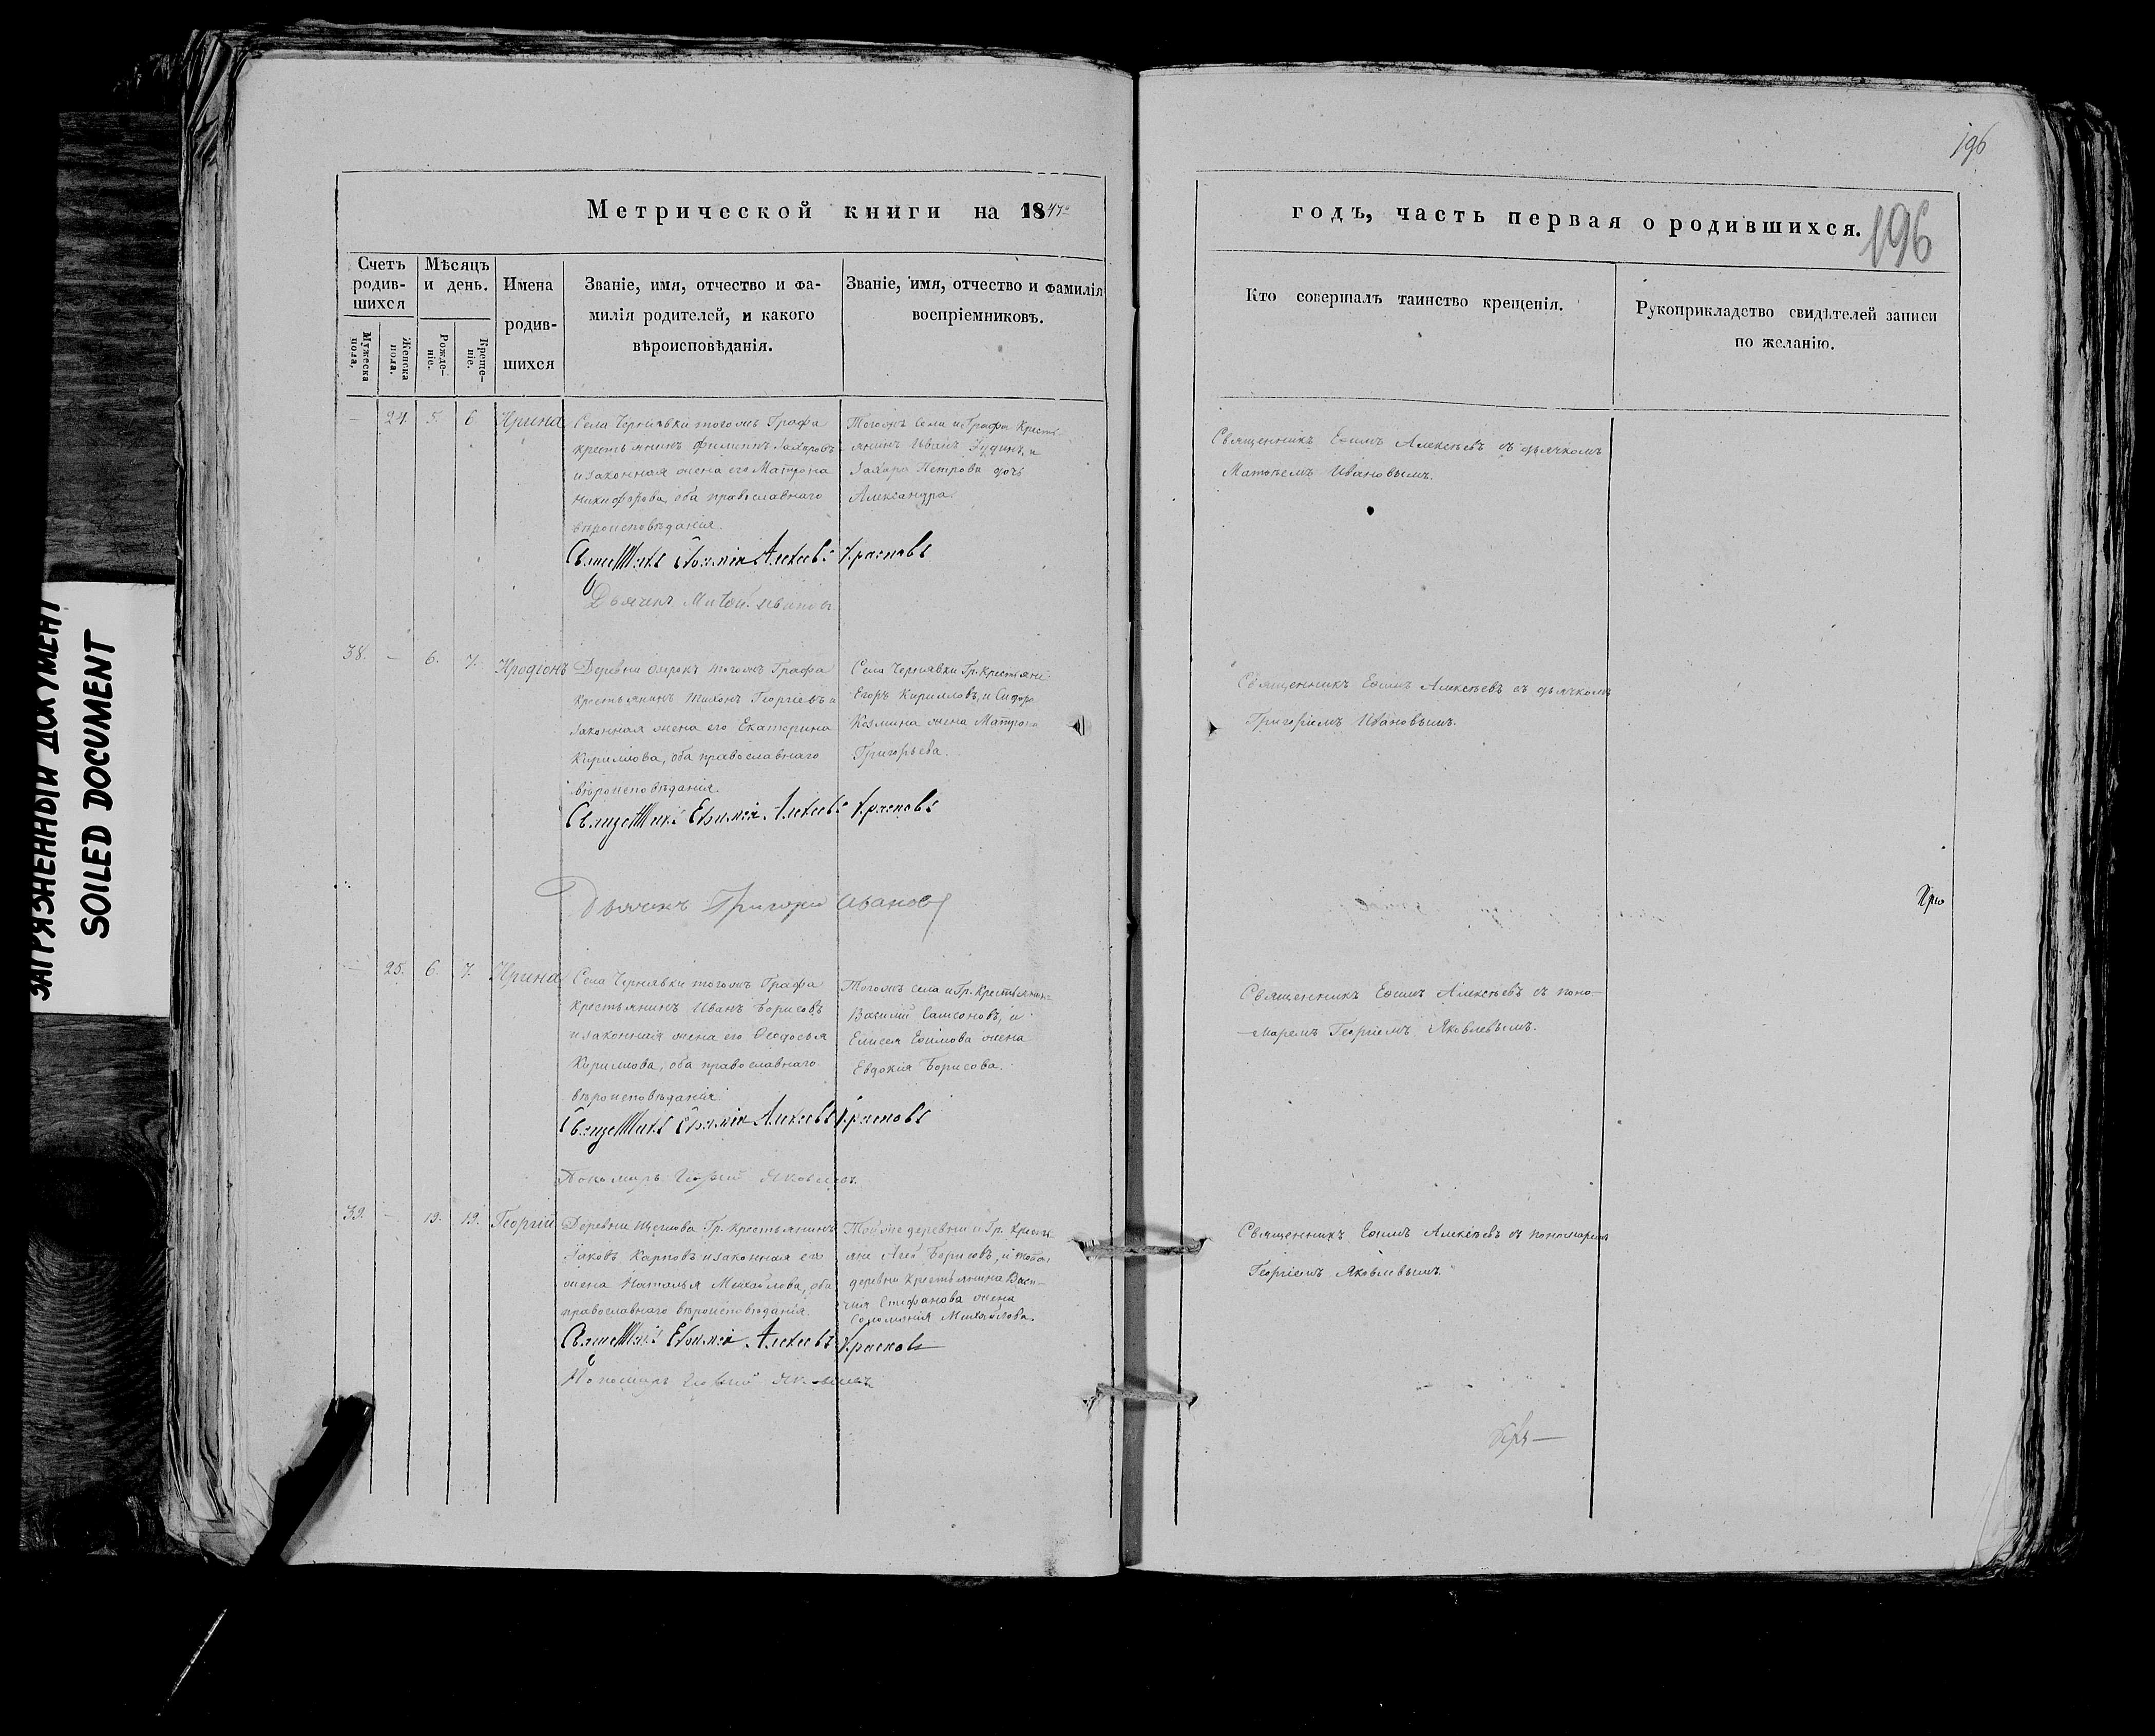 196
Метрической книги на 1847
годъ, часть первая о родившихся.
196
Счетъ родив-шихся
Мѣсяцъ и день.
Имена родив-шихся
Званіе, имя, отчество и фа-
милія родителей, и какого
вѣроисповѣданія.
Званіе, имя, отчество и фамилія
воспріемниковъ.
Кто совершалъ таинство крещенія.
Рукоприкладство свидѣтелей записи
по желанію.
Мужеска пола.
Женска пола.
Рожде-ніе.
Креще-ніе.
— 24. 5. 6 Ирина
Села Чернявки тогожъ Графа
крестьянинъ Филиппъ Захаровъ
и законная жена его Матрона
Никифорова, оба православнаго
вѣроисповѣданія.
Тогожъ села и Графа кресть
янинъ Иванъ и
Захара Петрова дочь
Александра
Священникъ Ефимъ Алексѣевъ съ дьячкомъ
Матѳеемъ Ивановымъ.
Священникъ Евфимій Алексѣевъ Красновъ
Дьячекъ Матѳей Ивановъ
38. — 6. 7. Иродіонъ
Деревни тогожъ Графа
крестьянинъ Тихонъ Георгіевъ и
законная жена его Екатерина
Кирилова, оба православнаго
вѣроисповѣданія.
Села Чернявки Гр. крестьяне
Егоръ Кирилловъ, и Сидора
Козмина жена Матрона
Григорьева.
Священникъ Ефимъ Алексѣевъ съ дьячкомъ
Григоріемъ Ивановымъ.
Священникъ Евфимій Алексѣевъ Красновъ
Дьячекъ Григорій Ивановъ
— 25. 6. 7. Ирина
Села Чернявки тогожъ Графа
Крестьянинъ Иванъ Борисовъ
и законная жена его Ѳеодосья
Кирилова, оба православнаго
вѣроисповѣданія.
Тогожъ села и Гр. крестьянинъ
Василій Самсоновъ, и
Елисея Ефимова жена
Евдокія Борисова.
Священникъ Ефимъ Алексѣевъ съ поно-
маремъ Георгіемъ Яковлевымъ.
Священникъ Евфимій Алексѣевъ Красновъ
Пономарь Георгій Яковлевъ.
39. — 19. 19. Георгій
Деревни Щеглова Гр. крестьянинъ
Іаковъ Карповъ и законная его
жена Наталья Михайлова, оба
православнаго вѣроисповѣданія.
Той же деревни и Гр. кресть
яне Борисовъ, и тойже
деревни крестьянина Васи-
лія Стефанова жена
Соломонія Михайлова.
Священникъ Ефимъ Алексѣевъ съ пономаремъ
Георгіемъ Яковлевымъ.
Священникъ Евфимій Алексѣевъ Красновъ
Пономарь Георгій Яковлевъ
ЗАГРЯЗНЕННЫЙ ДОКУМЕНТ
SOILED DOCUMENT